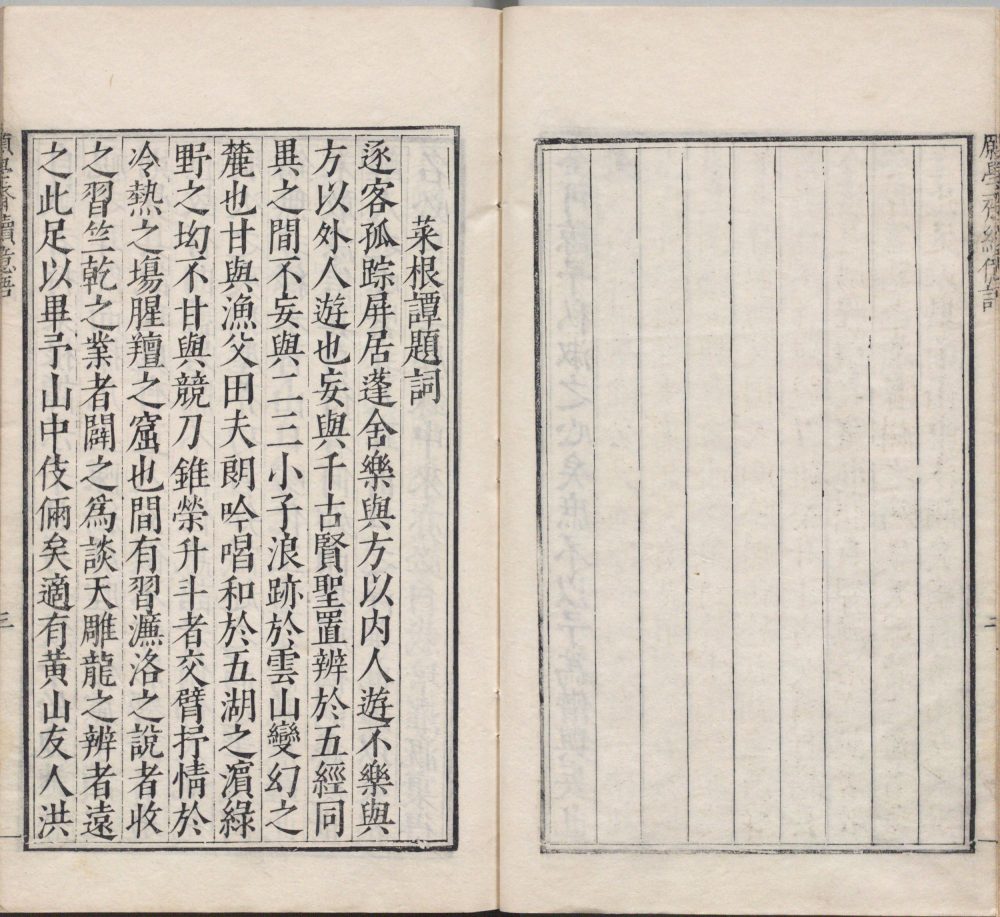 菜根譚題詞
逐客孤踪屏居蓬舍樂與方以内人遊不樂與
方以外人遊也妄與千古賢聖置辨於五經同
異之間不妄與二三小子浪跡於雲山變幻之
麓也甘與漁父田夫朗吟唱和於五湖之濵綠
野之坳不甘與競刀錐榮升斗者交臂抒情於
冷熱之塲腥羶之窟也間有習濂洛之說者收
之習竺乾之業者闢之爲談天雕龍之辨者遠
之此足以畢予山中伎倆矣適有黃山友人洪
三
三